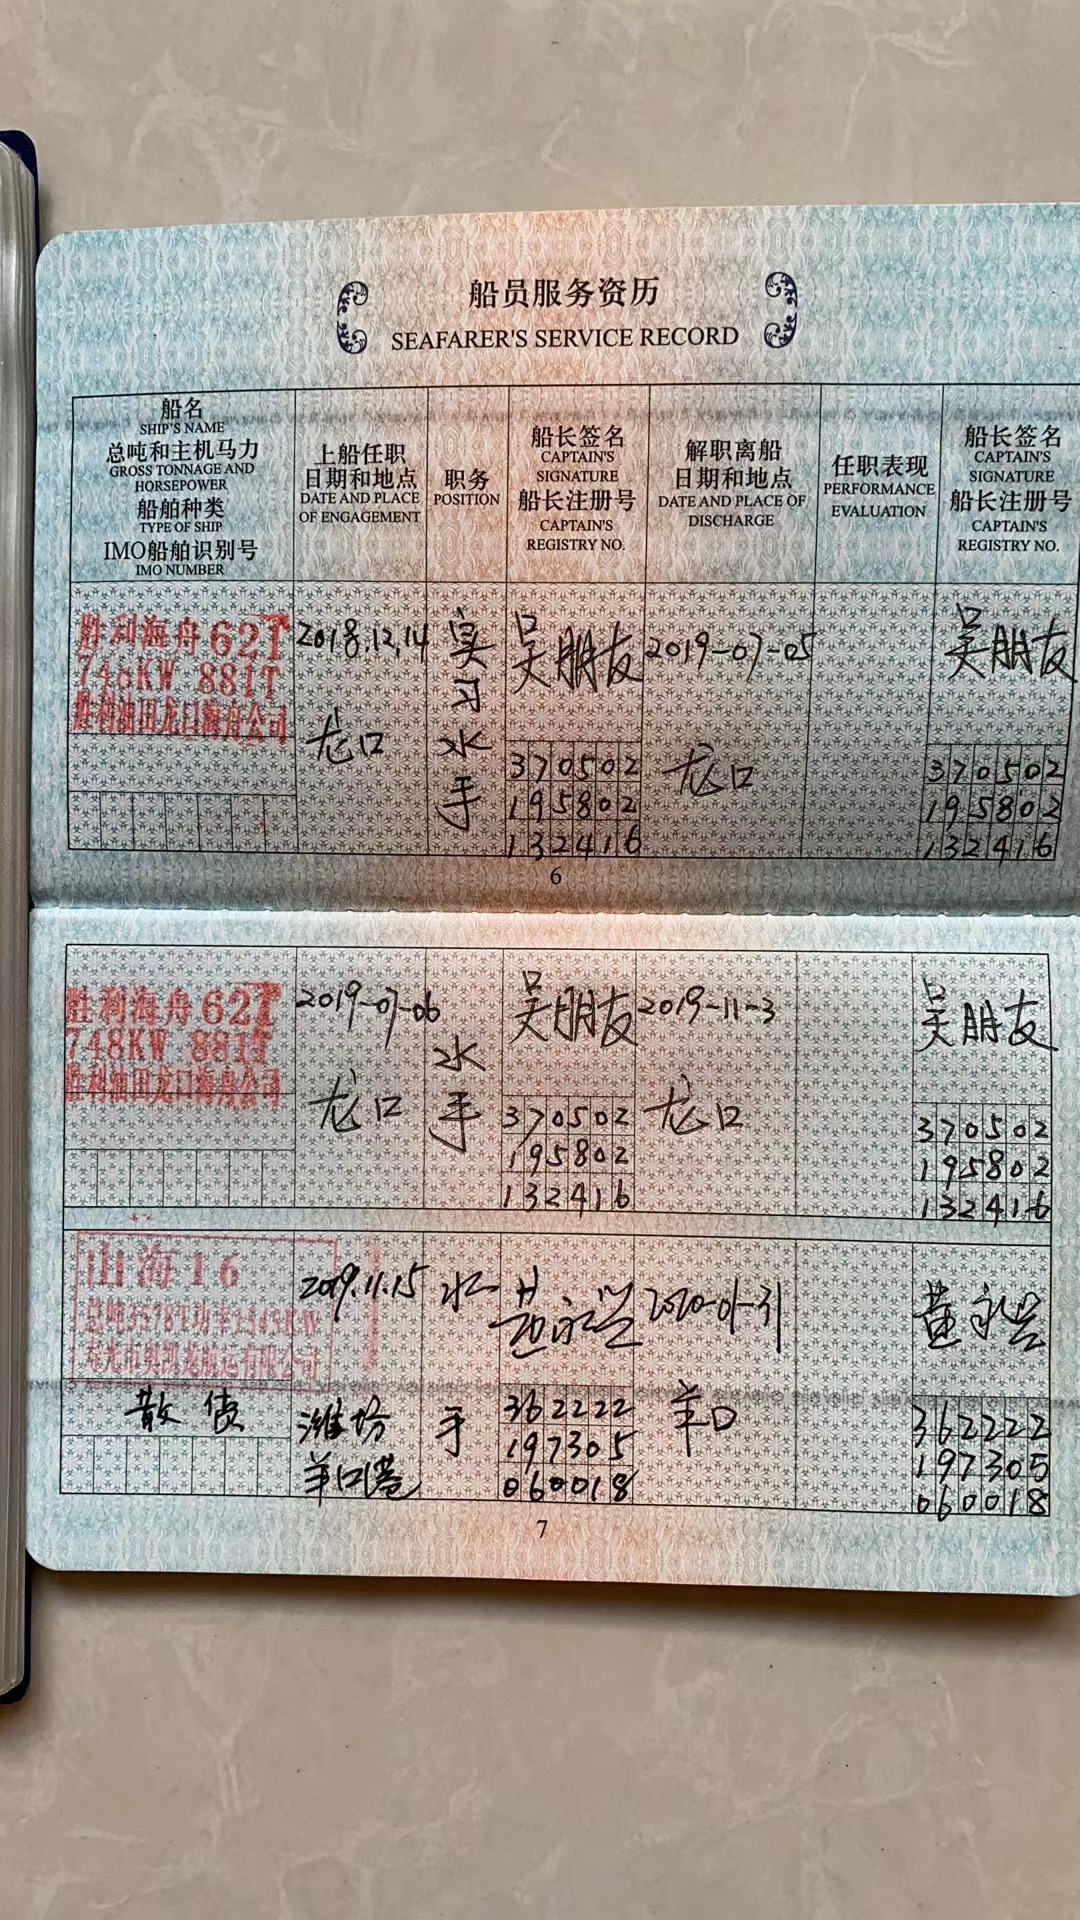 船员服务资历
SEAFARER'S SERVICE RECORD
船名
SHIP'S NAME
总吨和主机马力
GROSS TONNAGE AND
HORSEPOWER
船舶种类
TYPE OF SHIP
IMO船舶识别号
IMO NUMBER
上船任职
日期和地点
DATE AND PLACE
OF ENGAGEMENT
职务
POSITION
船长签名
CAPTAIN'S
SIGNATURE
船长注册号
CAPTAIN'S
REGISTRY NO.
解职离船
日期和地点
DATE AND PLACE OF
DISCHARGE
任职表现
PERFORMANCE
EVALUATION
船长签名
CAPTAIN'S
SIGNATURE
船长注册号
CAPTAIN'S
REGISTRY NO.
胜利海舟621
748KW 881T
胜利油田龙口海舟公司
2018.12.14
龙口
实习水手
吴朋友
370502
195802
132416
2019-07-05
龙口
吴朋友
370502
195802
132416
6
胜利海舟621
748KW 881T
胜利油田龙口海舟公司
2019-07-06
龙口
水手
吴朋友
370502
195802
132416
2019-11-3
龙口
吴朋友
370502
195802
132416
山海16
散货
2019.11.15
潍坊
羊口港
水手
黄永兴
362222
197305
060018
2020-01-31
羊口
黄永兴
362222
197305
060018
7